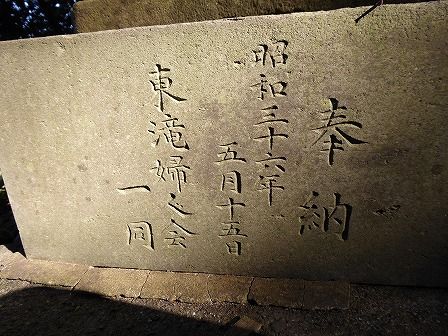 奉納
昭和三十六年
五月十五日
東滝婦之会
一同